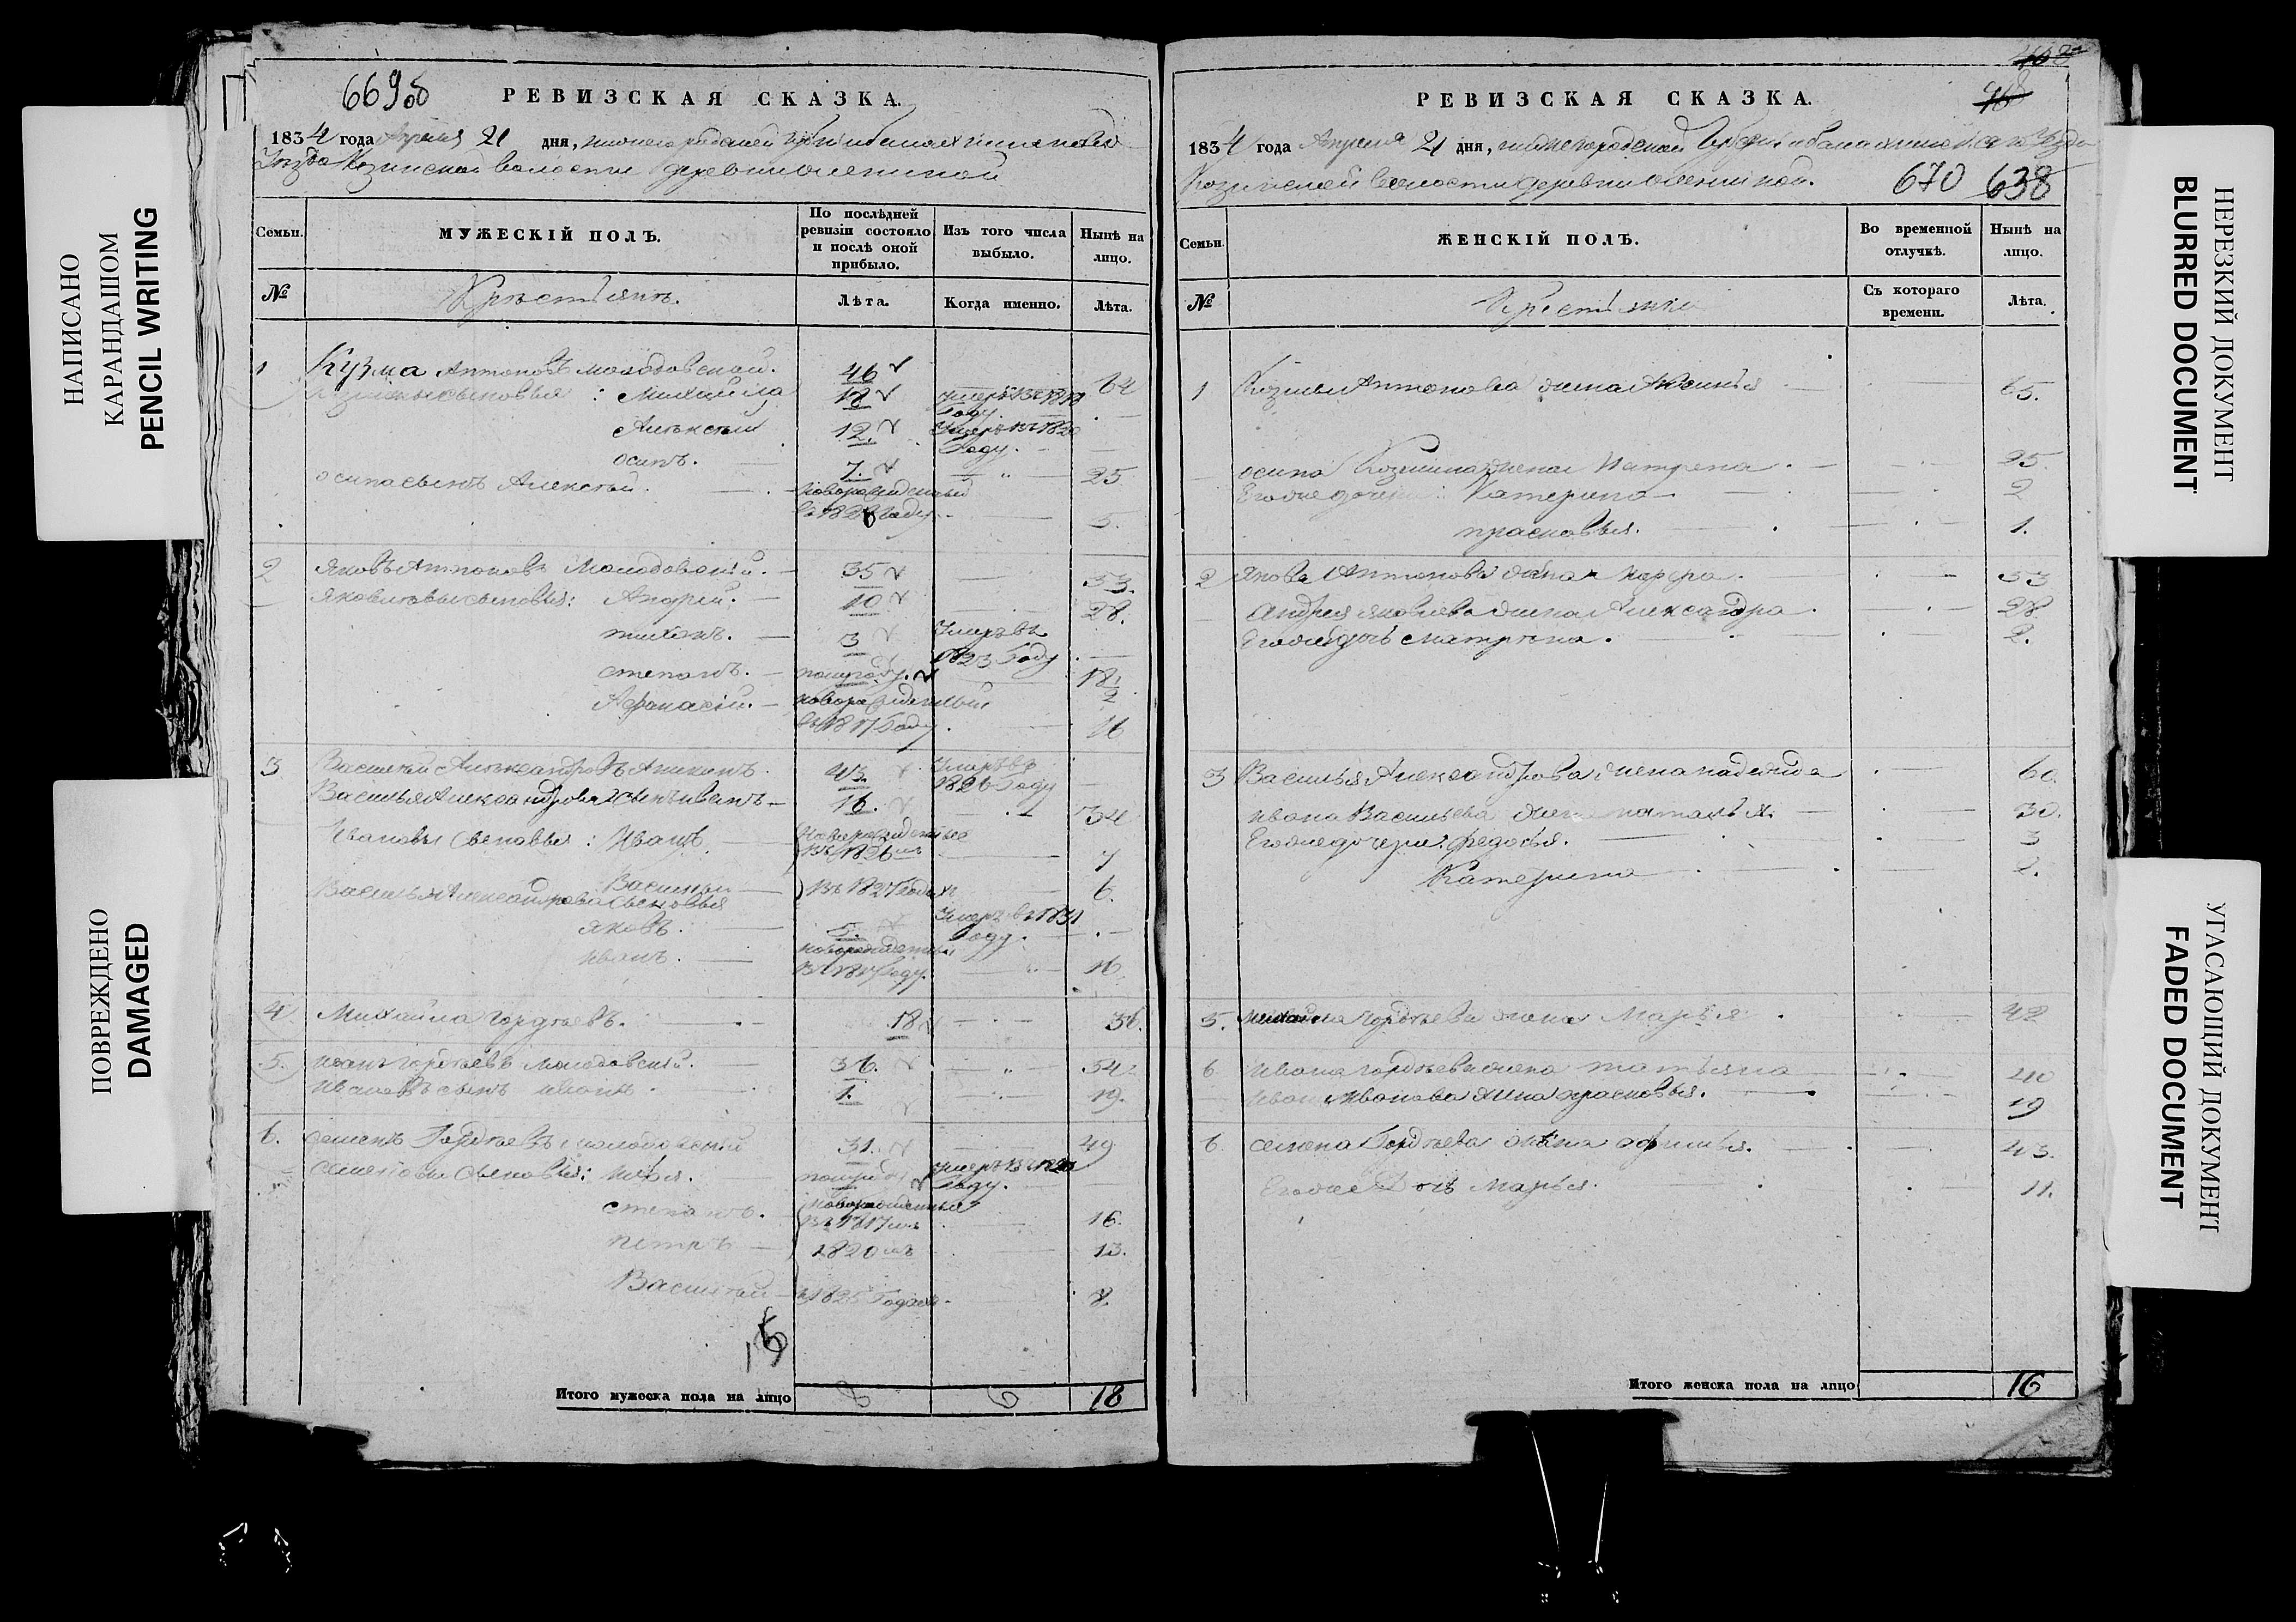 НАПИСАНО
КАРАНДАШОМ
PENCIL WRITING
ПОВРЕЖДЕНО
DAMAGED
669об
РЕВИЗСКАЯ СКАЗКА.
1834 года Апреля 21 дня,
Уезда Козинской волости деревни
Семьи.
МУЖЕСКІЙ ПОЛЪ.
По послѣдней ревизіи состояло и послѣ оной прибыло.
Изъ того числа выбыло.
Нынѣ на лицо.
№
Крестьянъ.
Лѣта.
Когда именно.
Лѣта.
1 Кузма Антоновъ Молодовской. 46 64
сыновья: Михайла 18 умеръ въ 1818 Году.
Алексѣй 12. Умеръ въ 1820 Году.
осипъ. 7. 25
осипа сынъ Алексѣй. новорожденный въ 1828 Году 5.
2 Яковъ Антоновъ Молодовскій. 35 53.
Яковлевы сыновья: Андрей. 10 28.
тихонъ. 3 Умеръ въ 1823 Году
степанъ. полугоду. 18 1/2
Афонасій. новорожденный въ 1817 Году 16
3 Василей Александровъ Аникинъ 43. Умеръ въ 1826 Году
Василья Александрова сынъ иванъ 16. 34
Ивановы сыновья: Иванъ новорожденные въ 1826мъ 7
Василей въ 1827 Годахъ 6.
Василья Александрова сыновья
яковъ. 5. Умеръ въ 1831 Году.
иванъ. новорожденный въ 1817 Году. 16
4 Михайла Гордѣевъ. 18 36.
5. иванъ гордѣевъ молодовскій. 36. 54
Ивановъ сынъ иванъ 1. 19.
6. семенъ Гордѣевъ молодовской 31. 49
семеновы сыновья: илья. полугоду умеръ въ Году.
степанъ. новорожденный въ 1817мъ 16.
петръ 1820мъ 13.
Василей 1825 Годахъ 8.
15
Итого мужеска пола на лицо 8 6 18
РЕВИЗСКАЯ СКАЗКА.
1834 года Апреля 21 дня, нижегородской Губерніи балахнинского Уезда
Козинской волости деревни
670 638
Семьи.
ЖЕНСКІЙ ПОЛЪ.
Во временной отлучкѣ.
Нынѣ на лицо.
№
Крестьянки
Съ котораго времени.
Лѣта.
1 Козмы Антонова жена Аксинья 65.
осипа Козмина жена Матрена 25.
Его же дочери: Катерина 2
прасковья. 1.
2 Якова Антонова жена 53
Андрея яковлева жена Александра 28
Его же дочь матрена. 2.
3 Василья Александрова жена надежда 60.
ивана Васильева жена наталья 30.
Его же дочери: федосья. 3
Катерина 2.
5. михайла гордѣева жена Марья 42
6 Ивана гордѣева жена татьяна 40
ивана Иванова жена прасковья. 19
6 семена Гордѣева жена афимья. 43.
Его же Дочь Марья. 11.
Итого женска пола на лицо 16
НЕРЕЗКИЙ ДОКУМЕНТ
BLURRED DOCUMENT
УГАСАЮЩИЙ ДОКУМЕНТ
FADED DOCUMENT